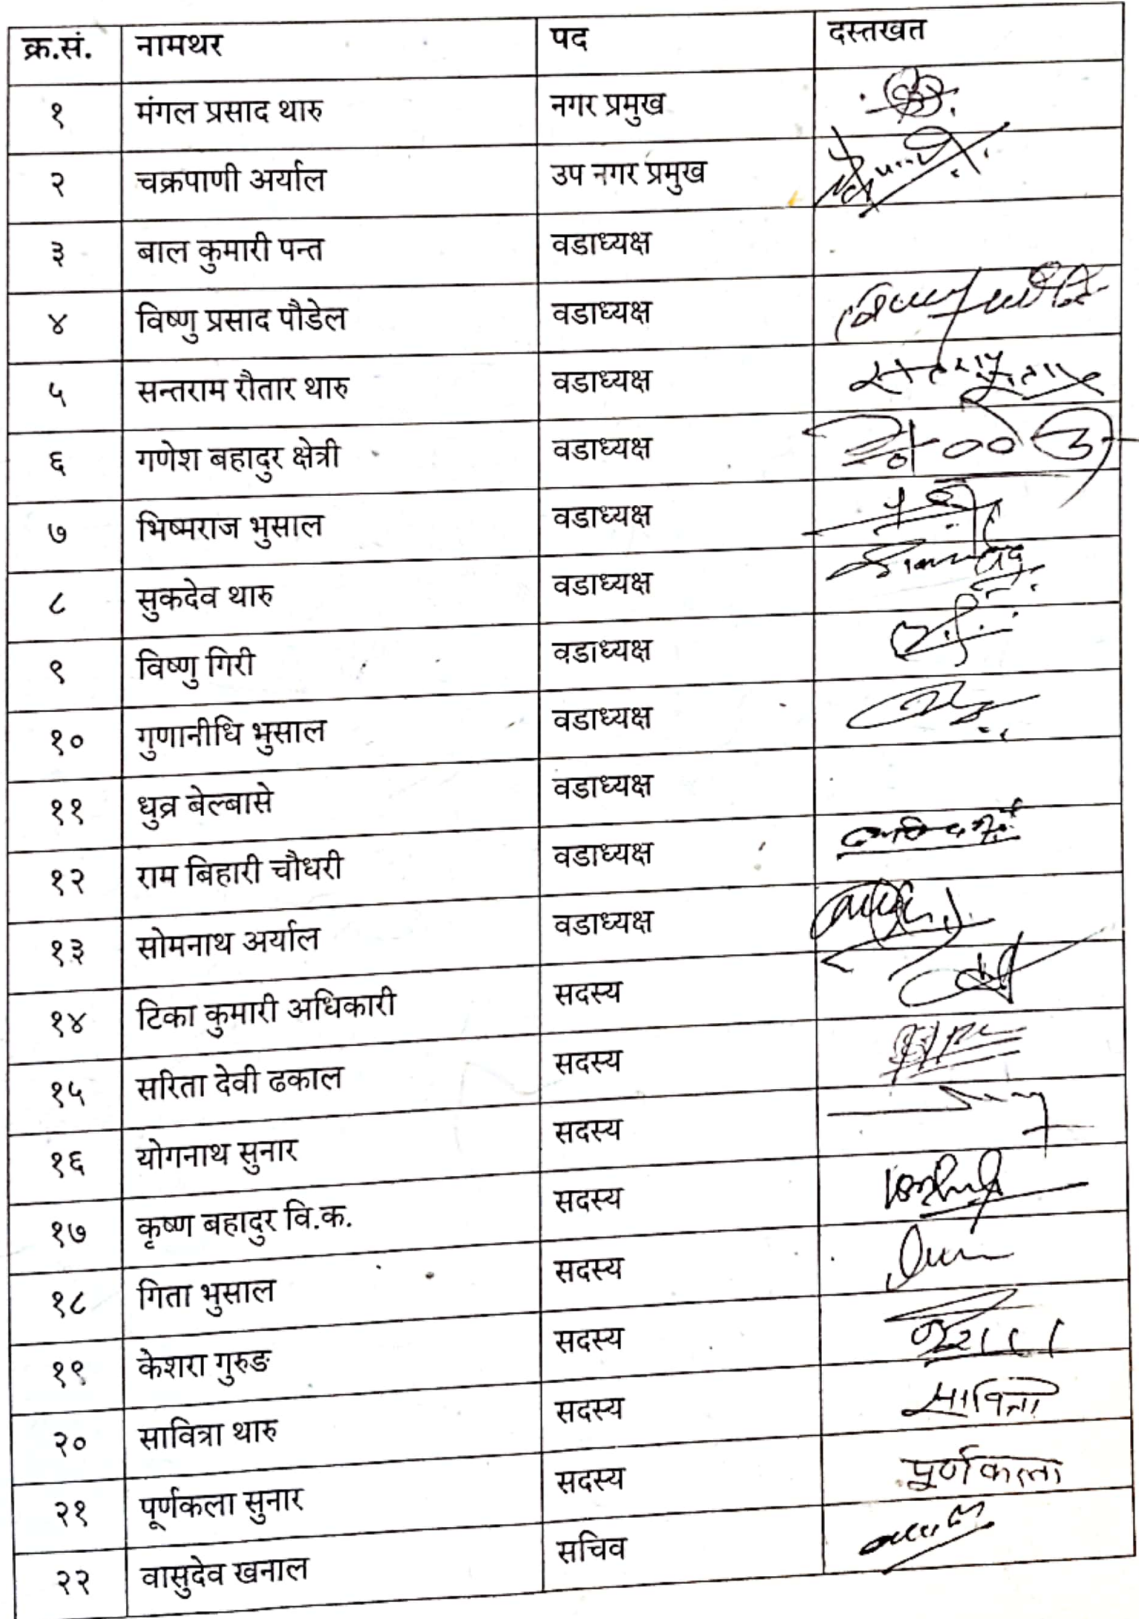 क्र.सं. नामथर पद दस्तखत
१ मंगल प्रसाद थारु नगर प्रमुख
२ चक्रपाणी अर्याल उप नगर प्रमुख
३ बाल कुमारी पन्त वडाध्यक्ष
४ विष्णु प्रसाद पौडेल वडाध्यक्ष
५ सन्तराम रौतार थारु वडाध्यक्ष
६ गणेश बहादुर क्षेत्री वडाध्यक्ष
७ भिष्मराज भुसाल वडाध्यक्ष
८ सुकदेव थारु वडाध्यक्ष
९ विष्णु गिरी वडाध्यक्ष
१० गुणानीधि भुसाल वडाध्यक्ष
११ धुव्र बेल्बासे वडाध्यक्ष
१२ राम बिहारी चौधरी वडाध्यक्ष
१३ सोमनाथ अर्याल वडाध्यक्ष
१४ टिका कुमारी अधिकारी सदस्य
१५ सरिता देवी ढकाल सदस्य
१६ योगनाथ सुनार सदस्य
१७ कृष्ण बहादुर वि.क. सदस्य
१८ गिता भुसाल सदस्य
१९ केशरा गुरुङ सदस्य
२० सावित्रा थारु सदस्य सावित्रा
२१ पूर्णकला सुनार सदस्य पूर्णकला
२२ वासुदेव खनाल सचिव